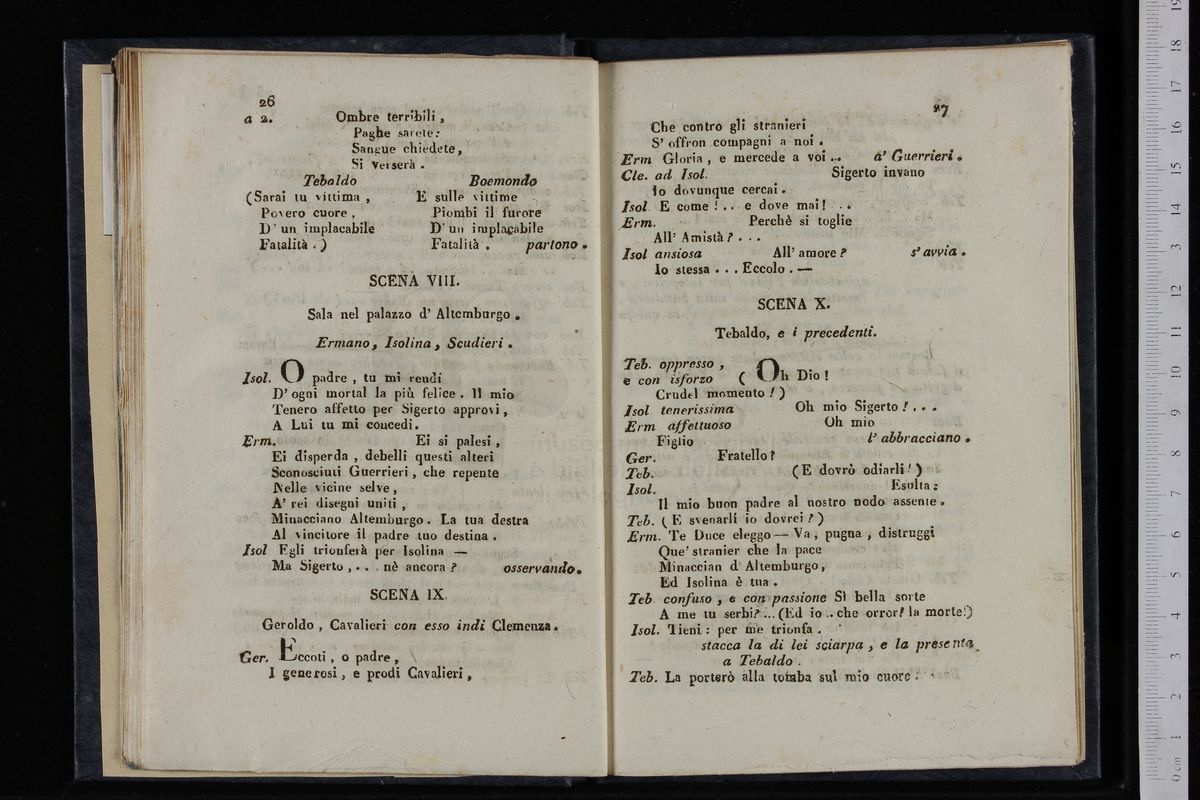 26
a 2. Ombre terribili,
Paghe sarete:
Sangue chiedete,
Si verserà.
Tebaldo Boemondo
(Sarai tu vittima, E sulle vittime
Povero cuore, Piombi il furore
D' un implacabile D' un implacabile
Fatalità.) Fatalità. partono.
SCENA VIII.
Sala nel palazzo d' Altemburgo.
Ermano, Isolina, Scudieri.
Isol. O padre, tu mi rendi
D' ogni mortal la più felice. Il mio
Tenero affetto per Sigerto approvi,
A Lui tu mi concedi.
Erm. Ei si palesi,
Ei disperda, debelli questi alteri
Sconosciuti Guerrieri, che repente
Nelle vicine selve,
A' rei disegni uniti,
Minacciano Altemburgo. La tua destra
Al vincitore il padre tuo destina.
Isol Egli trionferà per Isolina —
Ma Sigerto,... nè ancora? osservando.
SCENA IX.
Geroldo, Cavalieri con esso indi Clemenza.
Ger. Eccoti, o padre,
I generosi, e prodi Cavalieri,
27
Che contro gli stranieri
S' offron compagni a noi.
Erm Gloria, e mercede a voi... a' Guerrieri.
Cle. ad Isol. Sigerto invano
Io dovunque cercai.
Isol E come!... e dove mai!...
Erm. Perchè si toglie
All' Amistà?...
Isol ansiosa All' amore? s' avvia.
Io stessa... Eccolo. —
SCENA X.
Tebaldo, e i precedenti.
Teb. oppresso,
e con isforzo ( Oh Dio!
Crudel momento!)
Isol tenerissima Oh mio Sigerto!...
Erm affettuoso Oh mio
Figlio l' abbracciano.
Ger. Fratello?
Teb. (E dovrò odiarli!)
Isol. Esulta:
Il mio buon padre al nostro nodo assente.
Teb. (E svenarli io dovrei?)
Erm. Te Duce eleggo — Va, pugna, distruggi
Que' stranier che la pace
Minaccian d' Altemburgo,
Ed Isolina è tua.
Teb confuso, e con passione Sì bella sorte
A me tu serbi?... (Ed io.. che orror! la morte!)
Isol. Tieni: per me trionfa.
stacca la di lei sciarpa, e la presenta
a Tebaldo.
Teb. La porterò alla tomba sul mio cuore.